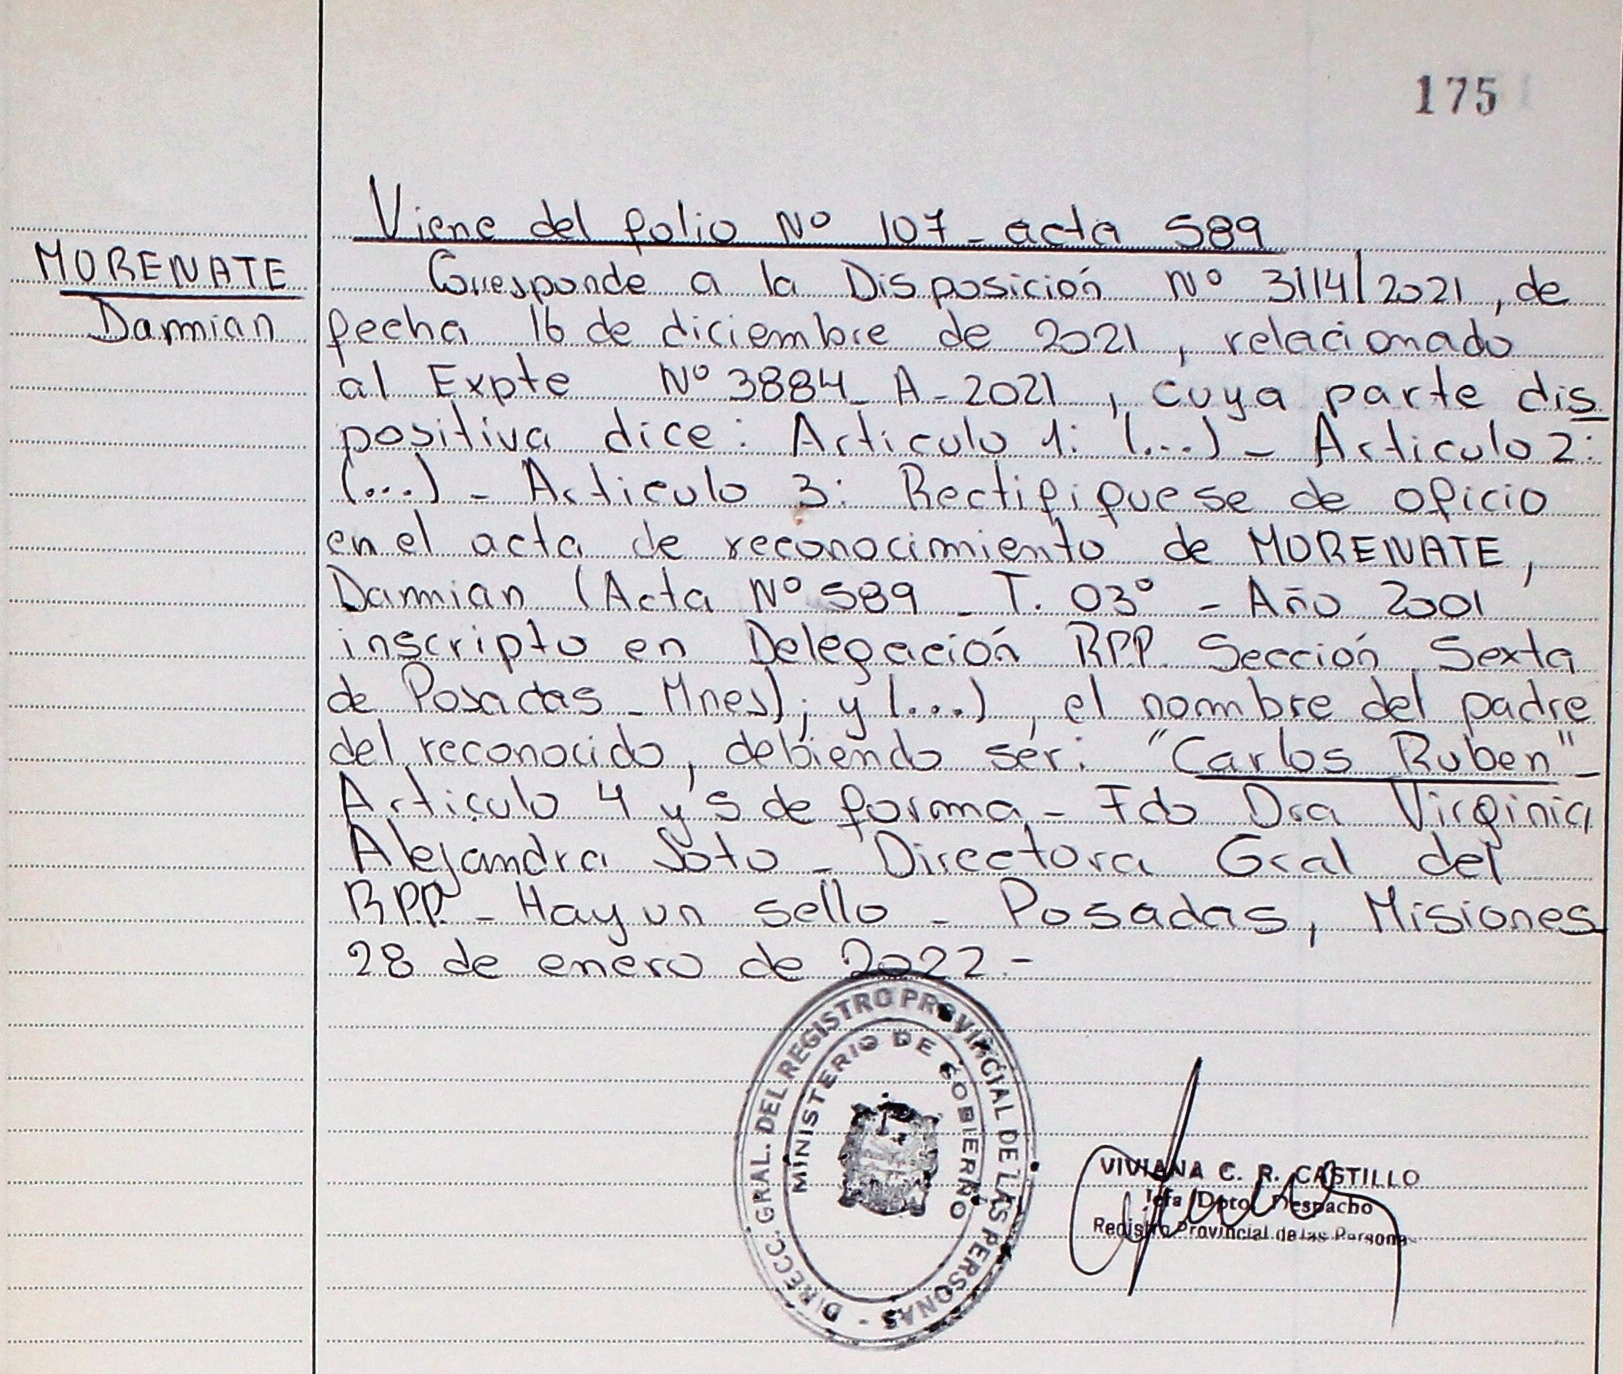 175
Viene del folio Nº 107 - acta 589
MORENATE
Damian
Corresponde a la Disposición Nº 3114/2021, de
fecha 16 de diciembre de 2021, relacionado
al Expte Nº 3884 - A - 2021, cuya parte dis
positiva dice: Articulo 1: (...) - Articulo 2:
(...) - Articulo 3: Rectififuese de oficio
en el acta de reconocimiento de MORENATE,
Damian (Acta Nº 589 - T. 03º - Año 2001
inscripto en Delegación RPP. Sección Sexta
de Posadas - Mnes); y (...), el nombre del padre
del reconocido, debiendo ser: "Carlos Ruben" -
Articulo 4 y 5 de forma - Fdo Dra Virginia
Alejandra Soto - Directora Gral del
RPP - Hay un sello - Posadas, Misiones
28 de enero de 2022.-
DIRECC. GRAL. DEL REGISTRO PROVINCIAL DE LAS PERSONAS -
MINISTERIO DE GOBIERNO
VIVIANA C. R. CASTILLO
Jefa Dpto. Despacho
Registro Provincial de las Personas